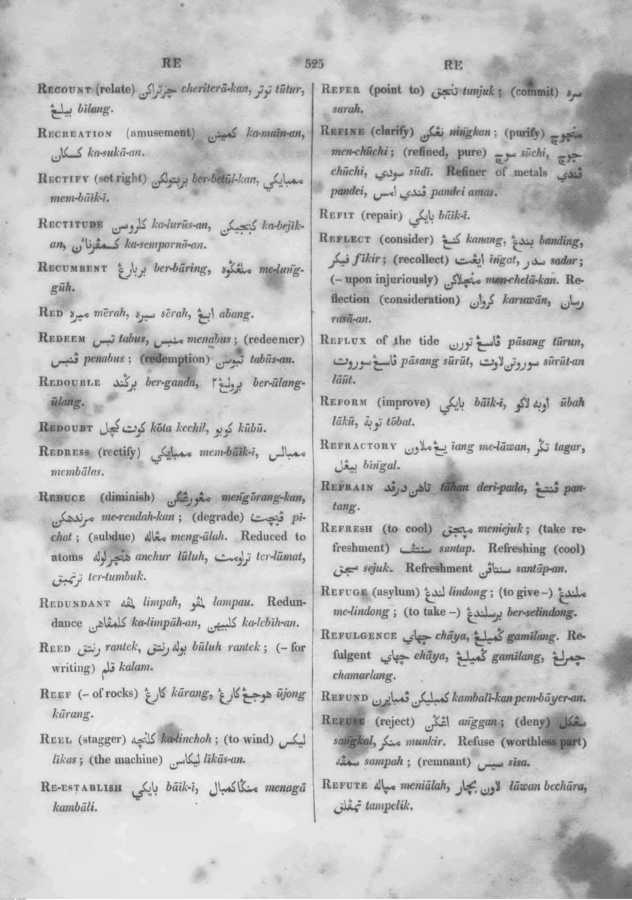 RE
525
RE
RECOUNT (relate) چرتراکن cheriterā-kan, توتر tūtur,
بيلڠ bīlang.
RECREATION (amusement) كمينن ka-maīn-an,
كسكان ka-sukā-an.
RECTIFY (set right) بربتولكن ber-betūl-kan, ممبايكي
mem-bāik-i.
RECTITUDE كلروسن ka-lurūs-an, كبجيكن ka-bejīk-
an, كسمڤرنائن ka-sempornā-an.
RECUMBENT بربارڠ ber-bāring, me-lung-
gūh.
RED ميره mērah, سيره sērah, ابڠ abang.
REDEEM تبس tabus, منبس menabus; (redeemer)
ڤنبس penabus; (redemption) تبوسن tabūs-an.
REDOUBLE برگند ber-ganda, برولڠ٢ ber-ūlang-
ūlang.
REDOUBT كوت كچل kōta kechīl, كوبو kūbū.
REDRESS (rectify) ممبايكي mem-bāik-i, ممبالس
membālas.
REDUCE (diminish) مڠورڠكن mengūrang-kan,
مرندهكن me-rendah-kan; (degrade) ڤيچت pi-
chat; (subdue) مڠاله meng-ālah. Reduced to
atoms هنچر لوله anchur lūluh, ترلومت ter-lūmat,
ترتمبق ter-tumbuk.
REDUNDANT لمڤه limpah, لمڤو lampau. Redun-
dance كلمڤاهن ka-limpāh-an, كلبيهن ka-lebīh-an.
REED رنتق rantek, بوله رنتق būluh rantek; (– for
writing) قلم kalam.
REEF (– of rocks) كارڠ kārang, هوجڠ كارڠ ūjong
kārang.
REEL (stagger) كلنچه ka-linchoh; (to wind) ليكس
līkas; (the machine) ليكاسن līkās-an.
RE-ESTABLISH بايكي bāik-i, منگاكمبال menagā
kambāli.
REFER (point to) تنجق tunjuk; (commit) سره
sarah.
REFINE (clarify) نڠكن ningkan; (purify) منچوچ
men-chūchi; (refined, pure) سوچ sūchi, چوچ
chūchi, سودي sūdī. Refiner of metals ڤندي
pandei, ڤندي امس pandei amas.
REFIT (repair) بايكي bāik-i.
REFLECT (consider) كنڠ kanang, بندڠ banding,
فيكر fīkir; (recollect) ايڠت ingat, سدر sadar;
(– upon injuriously) منچلاكن men-chelā-kan. Re-
flection (consideration) كروان karuwān, رسان
rasā-an.
REFLUX of the tide ڤاسڠ تورن pāsang tūrun,
ڤاسڠ سوروت pāsang sūrūt, سوروتن لاوت sūrūt-an
lāūt.
REFORM (improve) بايكي bāik-i, اوبه لاكو ūbah
lākū, توبة tōbat.
REFRACTORY يڠ ملاون iang me-lāwan, تگر tagar,
بيڠل bingal.
REFRAIN تاهن درڤد tāhan deri-pada, ڤنتڠ pan-
tang.
REFRESH (to cool) مڽجق meniejuk; (take re-
freshment) سنتڤ santap. Refreshing (cool)
سجق sejuk. Refreshment سنتاڤن santāp-an.
REFUGE (asylum) لندڠ lindong; (to give –) ملندڠ
me-lindong; (to take –) برسلندڠ ber-selindong.
REFULGENCE چهاي chāya, گميلڠ gamīlang. Re-
fulgent چهاي chāya, گميلڠ gamīlang, چمرلڠ
chamarlang.
REFUND كمبليكن ڤمبايرن kambalī-kan pem-bāyer-an.
REFUSE (reject) اڠگن anggan; (deny) سڠكل
sangkal, منكر munkir. Refuse (worthless part)
سمڤه sampah; (remnant) سيس sīsa.
REFUTE مڽاله meniālah, لاون بچار lāwan bechāra,
تمڤلق tampelik.